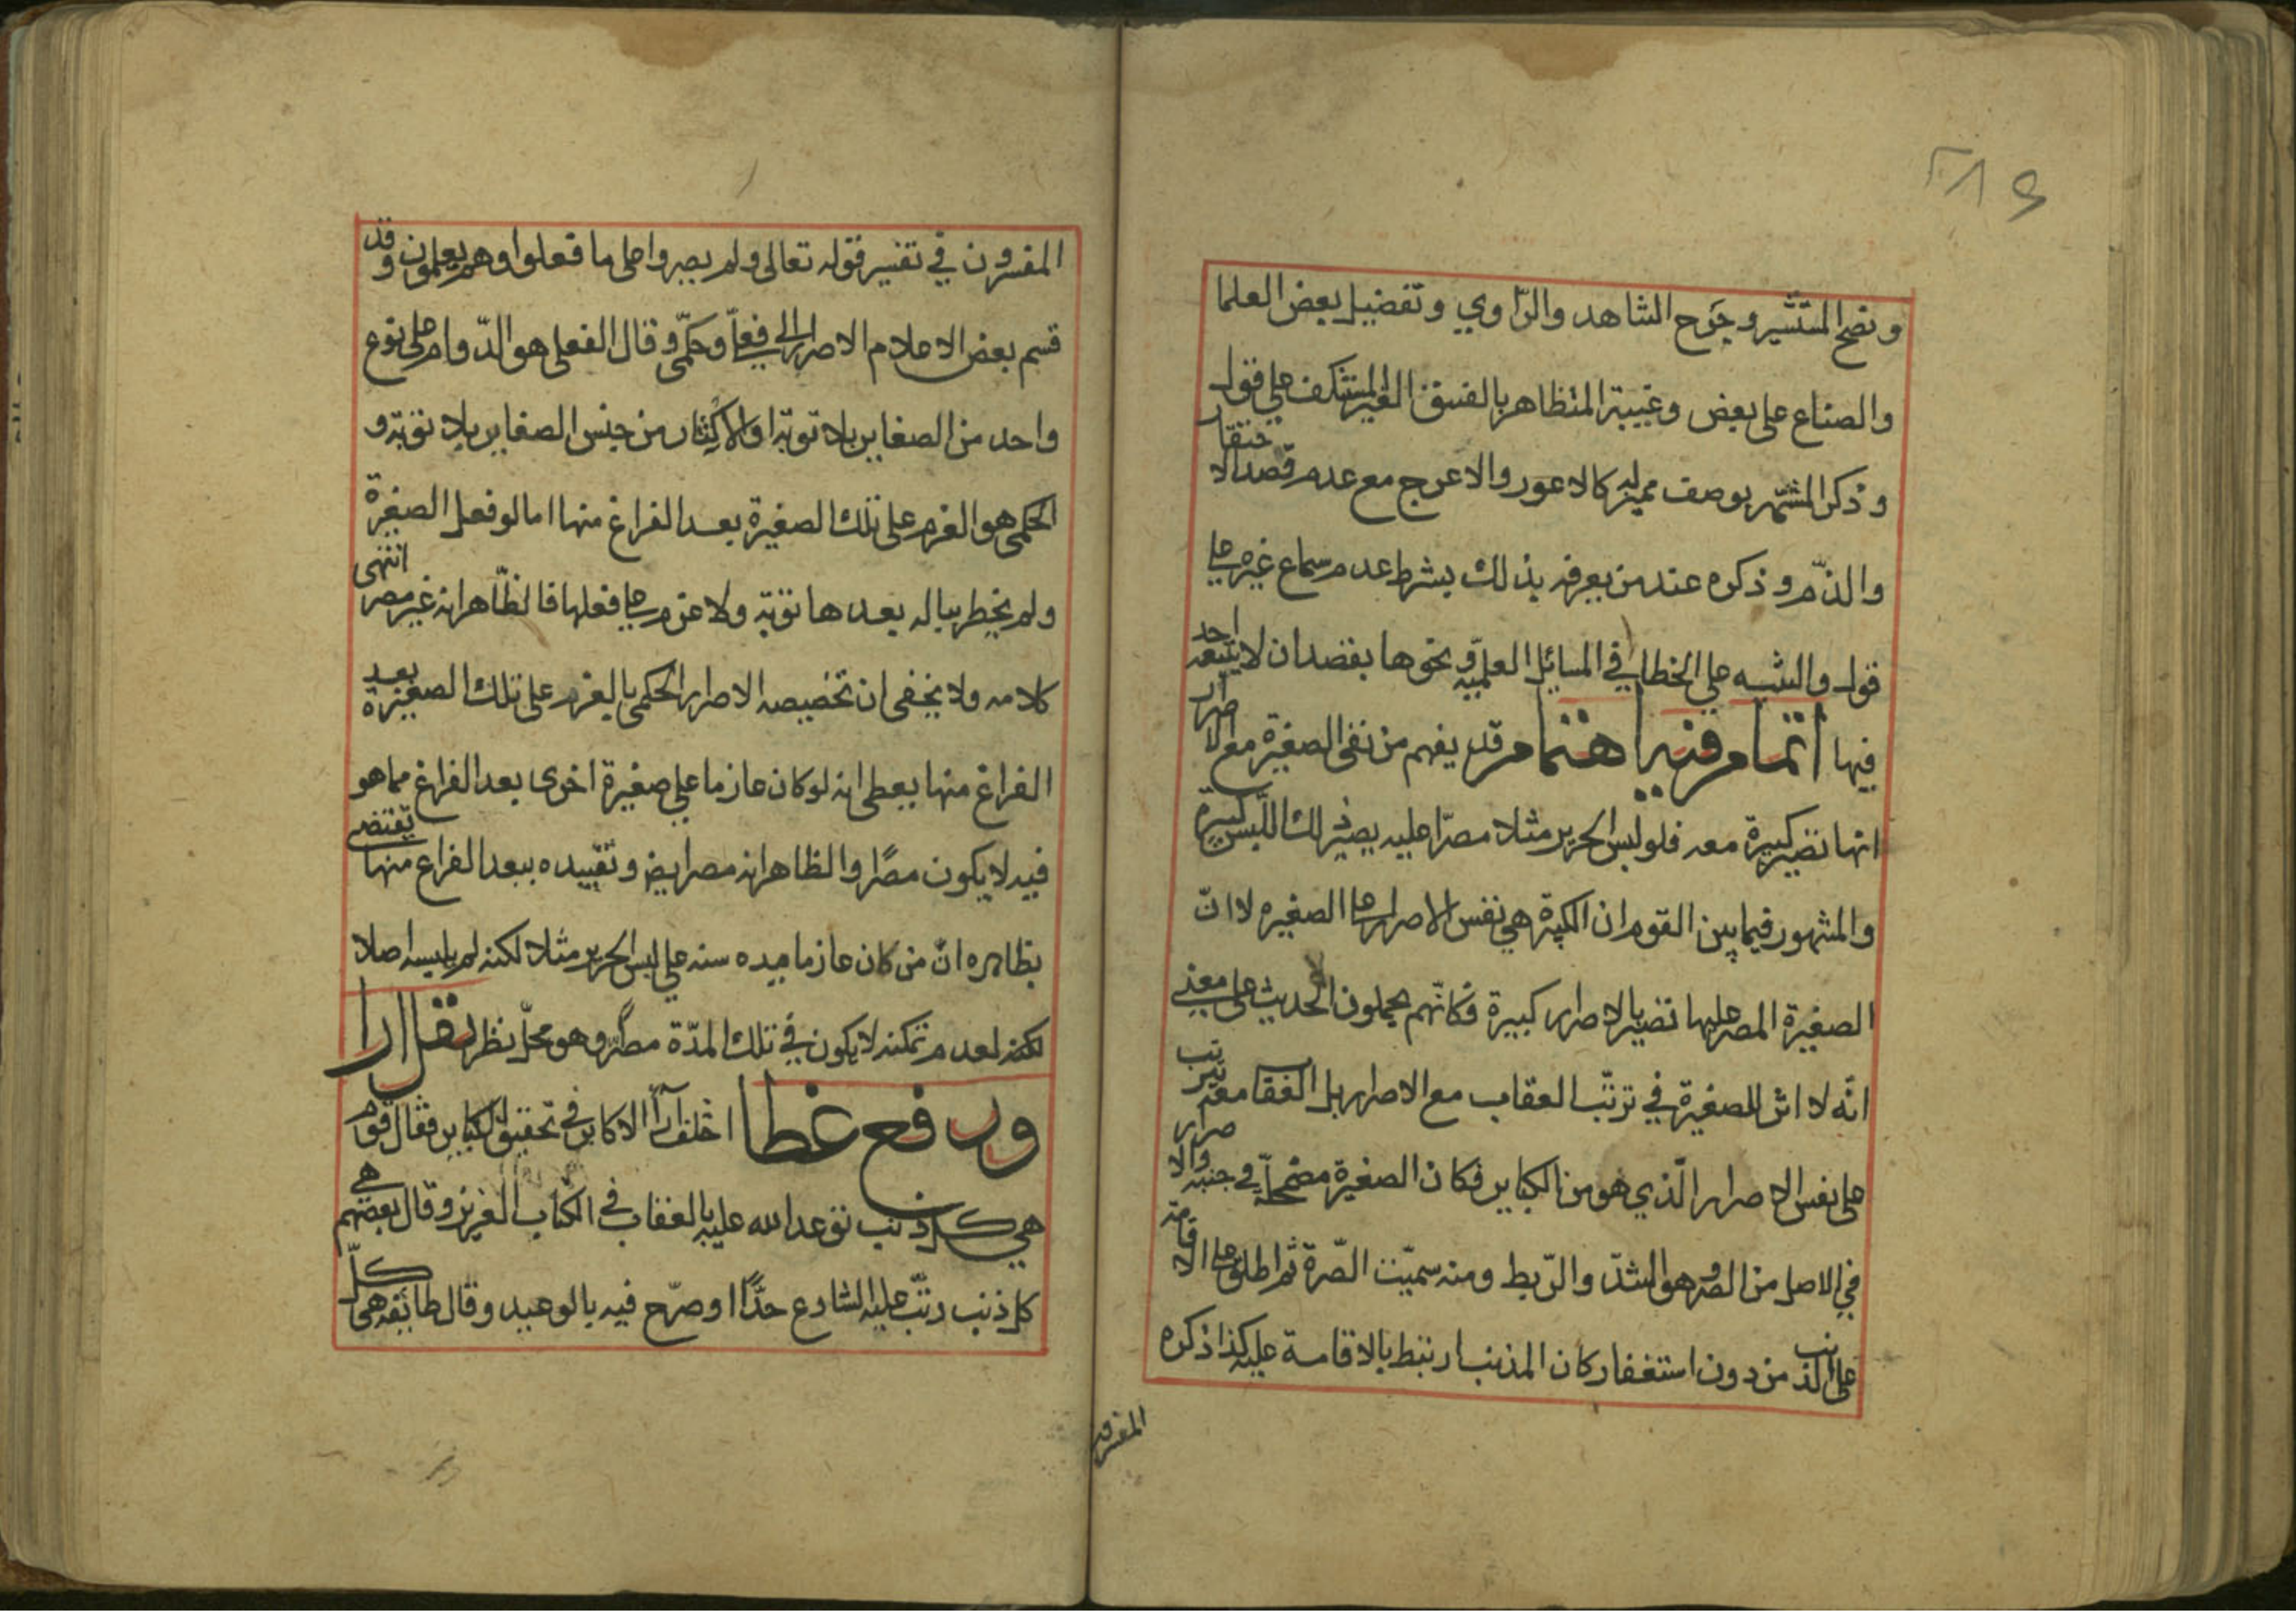 ونصح المستشير وجرح الشاهد والرّاوي وتفضيل بعض العلما
والصناع على بعض وغيبة المتظاهر بالفسق الغير المستنكف على قول
وذكر المشتهر بوصف مميز له كالاعور والاعرج مع عدم قصد الاحتقار
والذّم وذكره عند من يعرفه بذلك بشرط عدم سماع غيره على
قول والتنبيه على الخطا في المسائل العلميّة ونحوها بقصد ان لا يتبعه احد
فيها اتمام فيه اهتمام قد يفهم من نفى الصغيرة مع الاصرار
انها تصير كبيرة معه فلو لبس الحرير مثلا مصرّا عليه يصير ذلك اللّبس كبيرة
والمشهور فيما بين القوم ان الكبيرة هي نفس الاصرار على الصغيره لا انّ
الصغيرة المصر عليها تصير بالاصرار كبيرة فكانّهم يحملون الحديث على معنى
انّه لا اثر للصغيرة في ترتّب العقاب مع الاصرار بل العقاب معه يترتب
على نفس الاصرار الّذي هو من الكباير فكان الصغيرة مضمحلّة في جنبه والاصرار
في الاصل من الصر وهو الشدّ والرّبط ومنه سميّت الصّرة ثم اطلق على الاقامة
على الذنب من دون استغفار كان المذنب ارتبط بالاقامة عليه كذا ذكره
المفسرون
المفسرون في تفسير قوله تعالى ولم يصروا على ما فعلوا وهم يعلمون وقد
قسم بعض الاعلام الاصرار الى فعلىّ وحكمىّ وقال الفعلى هو الدّوام على نوع
واحد من الصغاير بلا توبة او الاكثار من جنس الصغاير بلا توبة و
الحكمى هو العزم على تلك الصغيرة بعد الفراغ منها اما لو فعل الصغيرة
ولم يخطر بباله بعدها توبة ولا عزم على فعلها فالظّاهر انه غير مصر انتهى
كلامه ولا يخفى ان تخصيصه الاصرار الحكمى بالعزم على تلك الصغيرة بعد
الفراغ منها يعطى انه لو كان عازما على صغيرة اخرى بعد الفراغ مما هو
فيه لا يكون مصرًا والظاهر انه مصر ايض وتقييده ببعد الفراغ منها يقتضى
بظاهره انّ من كان عازما مده سنه على لبس الحرير مثلا لكنه لم يلبسه اصلا
لعدم تمكنه لا يكون في تلك المدّة مصرًّا وهو محلّ نظر
ورفع غطا اختلف آراء الاكابر في تحقيق الكباير فقال قوم
هي كل ذنب توعد الله عليه بالعقاب في الكتاب العزيز وقال بعضهم هي
كل ذنب رتّب عليه الشارع حدًّا او صرّح فيه بالوعيد وقال طائفه هى كلّ